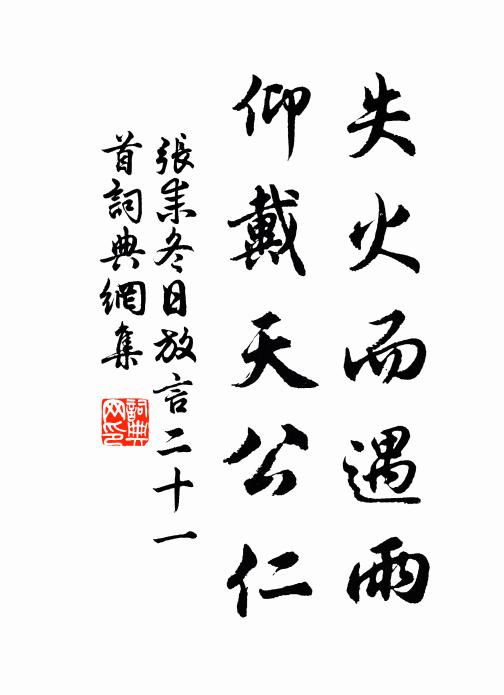 失火而遇雨
仰戴天公仁
張耒冬日放言二十一
首詞典網集
詞典
网印